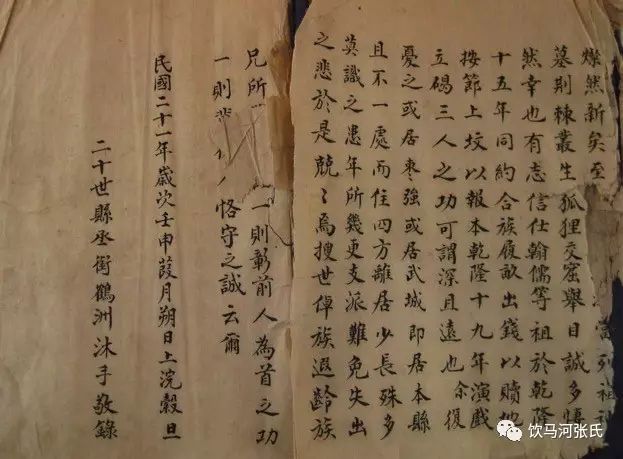 燦然新矣至當列祖
墓荆棘叢生狐狸交窟舉目誠多悽
然幸也有志信仕翰儒等祖於乾隆
十五年同約合族履畝出錢以贖地
按節上坟以報本乾隆十九年演戲
立碣三人之功可謂深且遠也余復
憂之或居枣強或居武城即居本縣
且不一處而住四方離居少長殊多
莫識之患年所幾更支派難免失出
之悲於是兢〻焉搜世倬族遐齡族
兄所一則彰前人為首之功
一則恪守之誠云爾
民國二十一年歲次壬申葭月朔日上浣穀旦
二十世縣丞銜鶴洲沐手敬錄
饮马河张氏